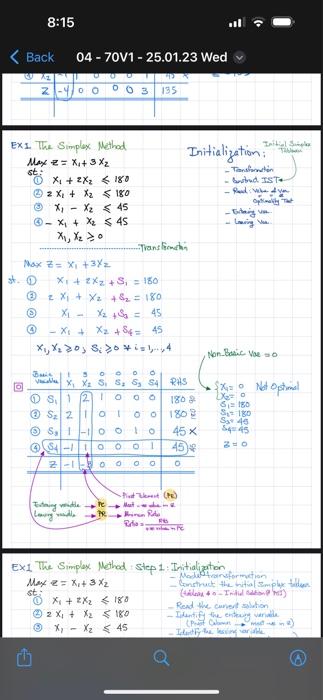 8:15
Back
04 - 70V1 - 25.01.23 Wed
Z -4 0 0 0 0 3 135
EX1 The Simplex Method
Max Z = X1 + 3 X2
st:
① X1 + 2X2 ≤ 180
② 2 X1 + X2 ≤ 180
③ X1 - X2 ≤ 45
④ - X1 + X2 ≤ 45
X1, X2 ≥ 0
Initialization:
Initial Simplex
Tableau
- Transformation
- Construct IST
Optimality Test
- Entering Var.
- Leaving Var.
Transformation
Max Z = X1 + 3X2
st. ① X1 + 2X2 + S1 = 180
② 2 X1 + X2 + S2 = 180
③ X1 - X2 + S3 = 45
④ - X1 + X2 + S4 = 45
X1, X2 ≥ 0, Si ≥ 0 ∀ i = 1, ..., 4
Non-Basic Var = 0
Basic 1 3 0 0 0 0
Variables X1 X2 S1 S2 S3 S4 RHS
⓪
① S1 1 2 1 0 0 0 180
② S2 2 1 0 1 0 0 180
③ S3 1 -1 0 0 1 0 45 X
④ S4 -1 1 0 0 0 1 45
Z -1 -3 0 0 0 0 0
X1 = 0
X2 = 0
S1 = 180
S2 = 180
S3 = 45
S4 = 45
Z = 0
Not Optimal
Pivot Element (PE)
Entering variable → PC → Most -ve value in Z
Leaving variable → PR → Minimum Ratio
Ratio = RHS / +ve value in PC
EX1 The Simplex Method: Step 1: Initialization
Max Z = X1 + 3 X2
st:
① X1 + 2X2 ≤ 180
② 2 X1 + X2 ≤ 180
③ X1 - X2 ≤ 45
- Model transformation
- Construct the initial simplex tableau
- Read the current solution
- Identify the entering variable
(Pivot Column → most -ve in Z)
- Identify the leaving variable